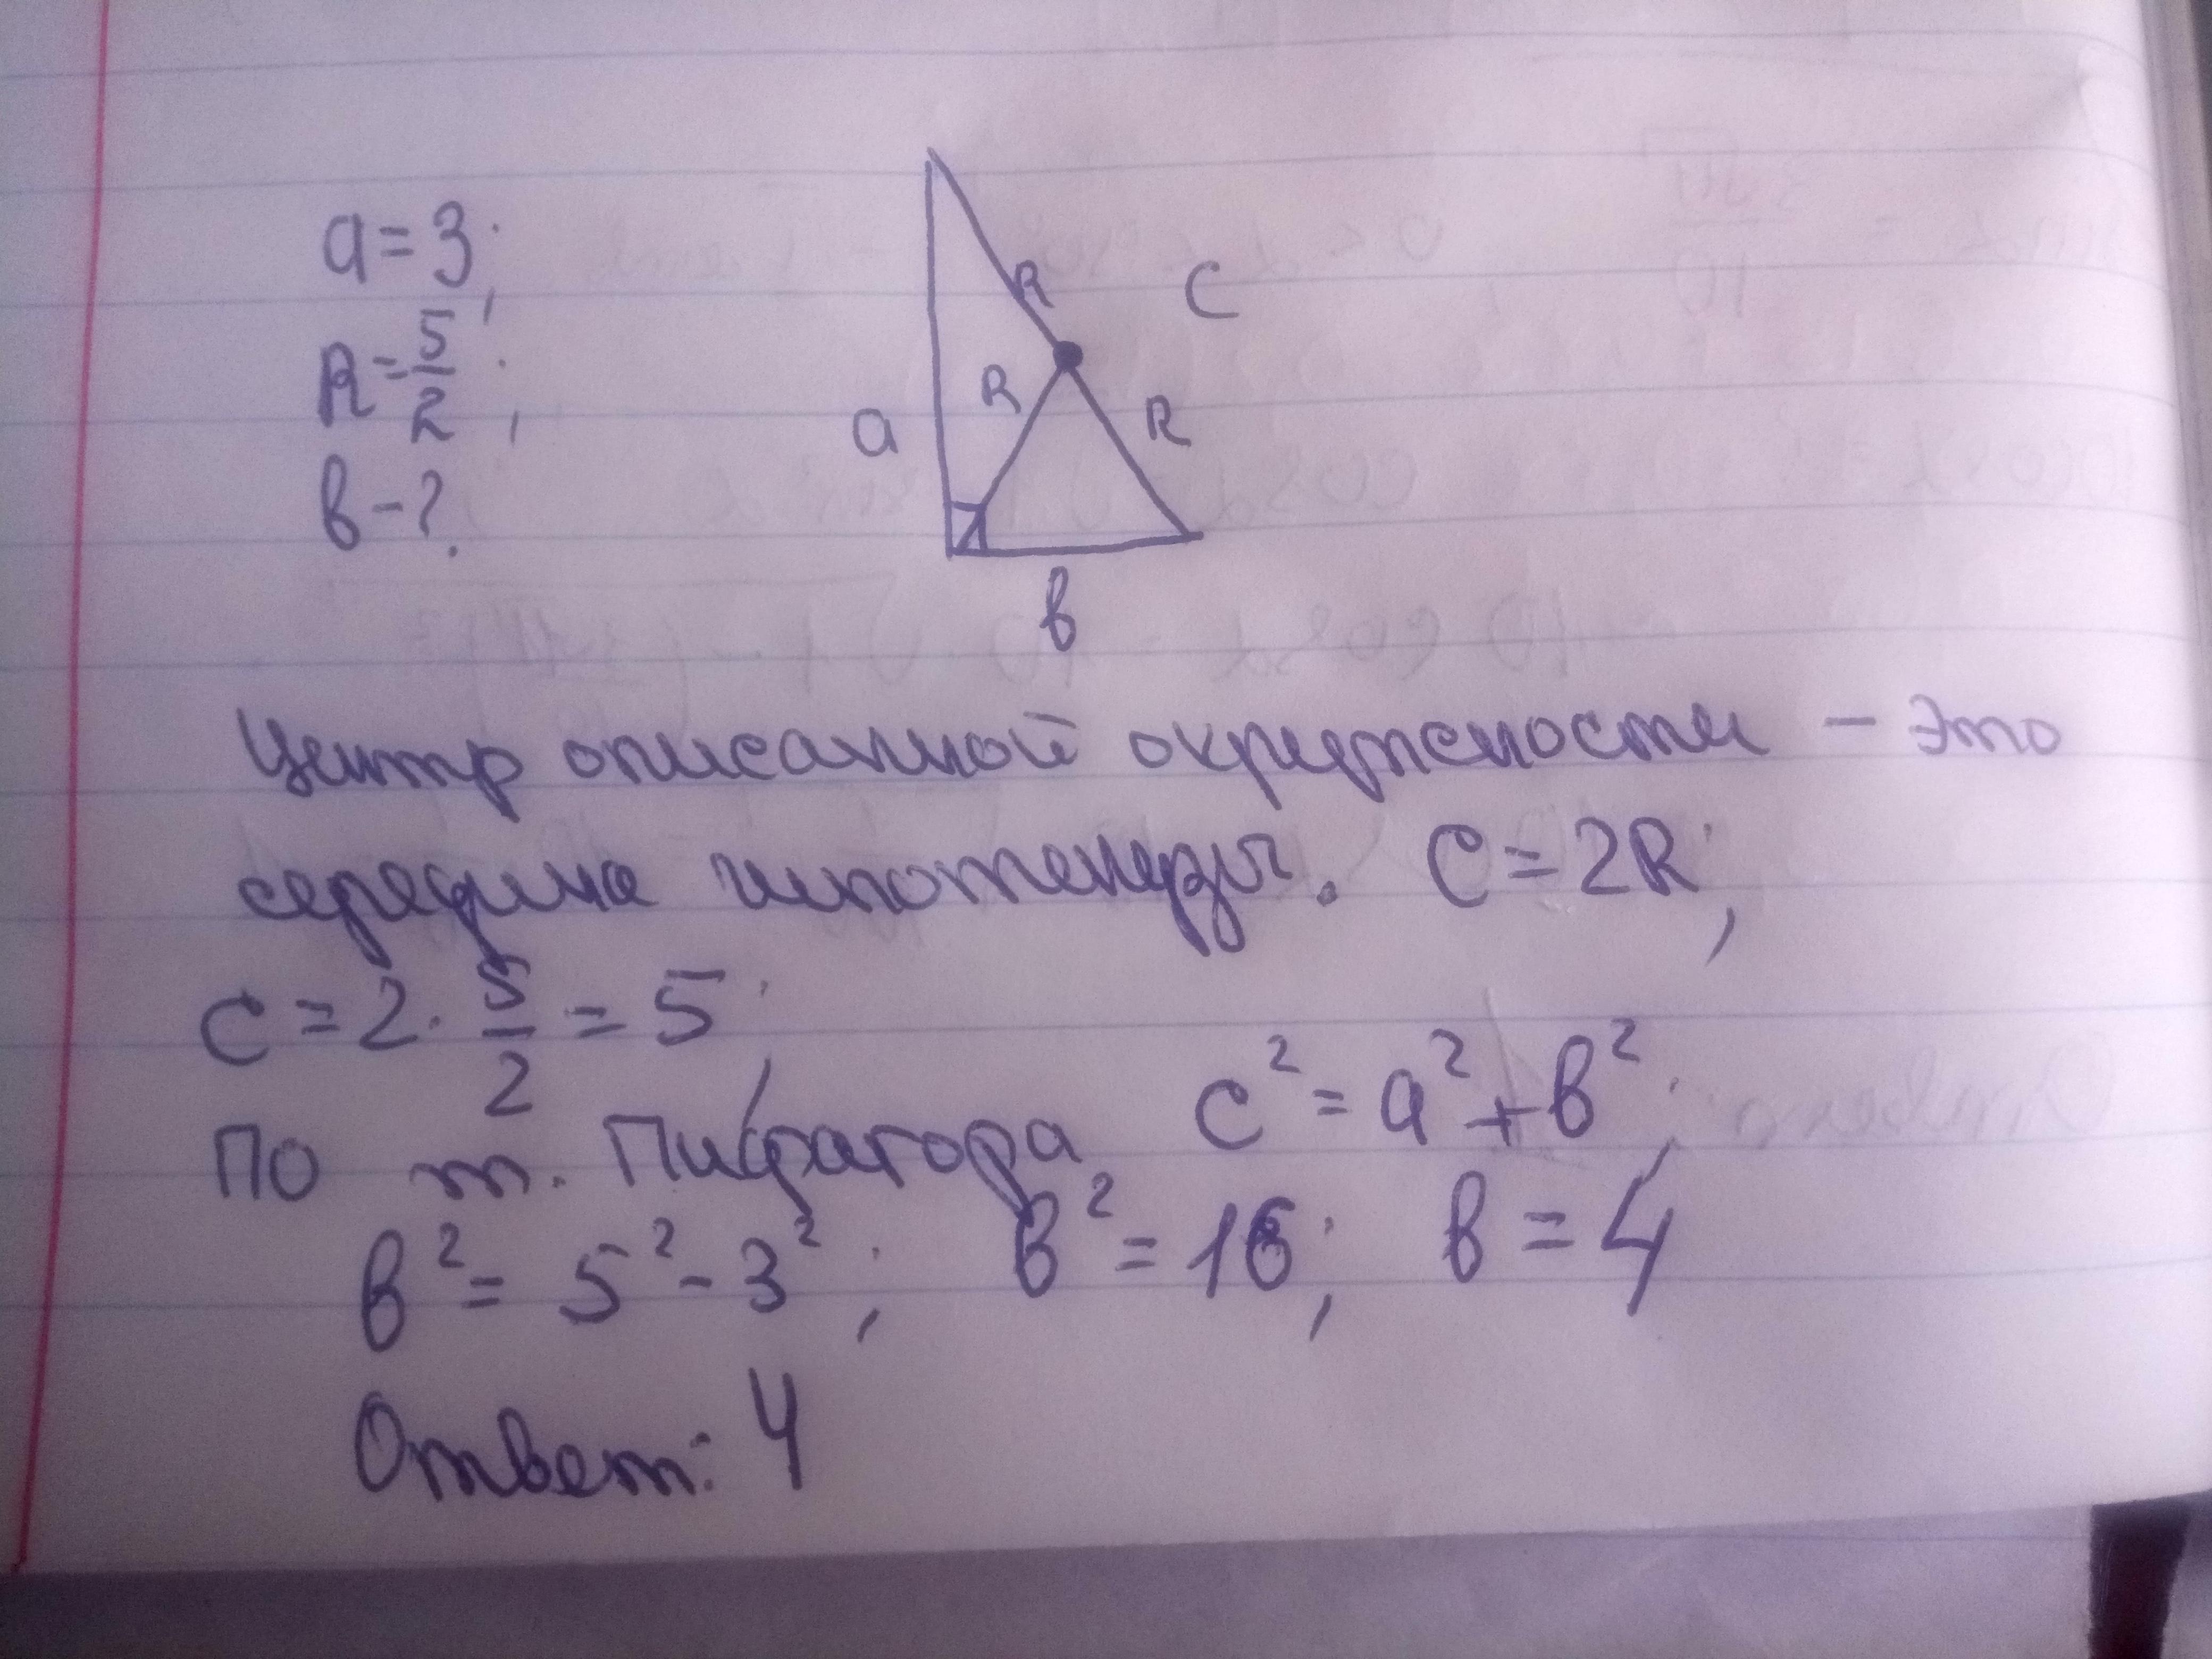 a = 3;
R = 5/2;
в - ?
R
C
R
R
a
в
Центр описанной окружности – это
середина гипотенузы. C = 2R;
c = 2 · 5/2 = 5;
По т. Пифагора c² = a² + в²;
в² = 5² - 3²; в² = 16; в = 4
Ответ: 4